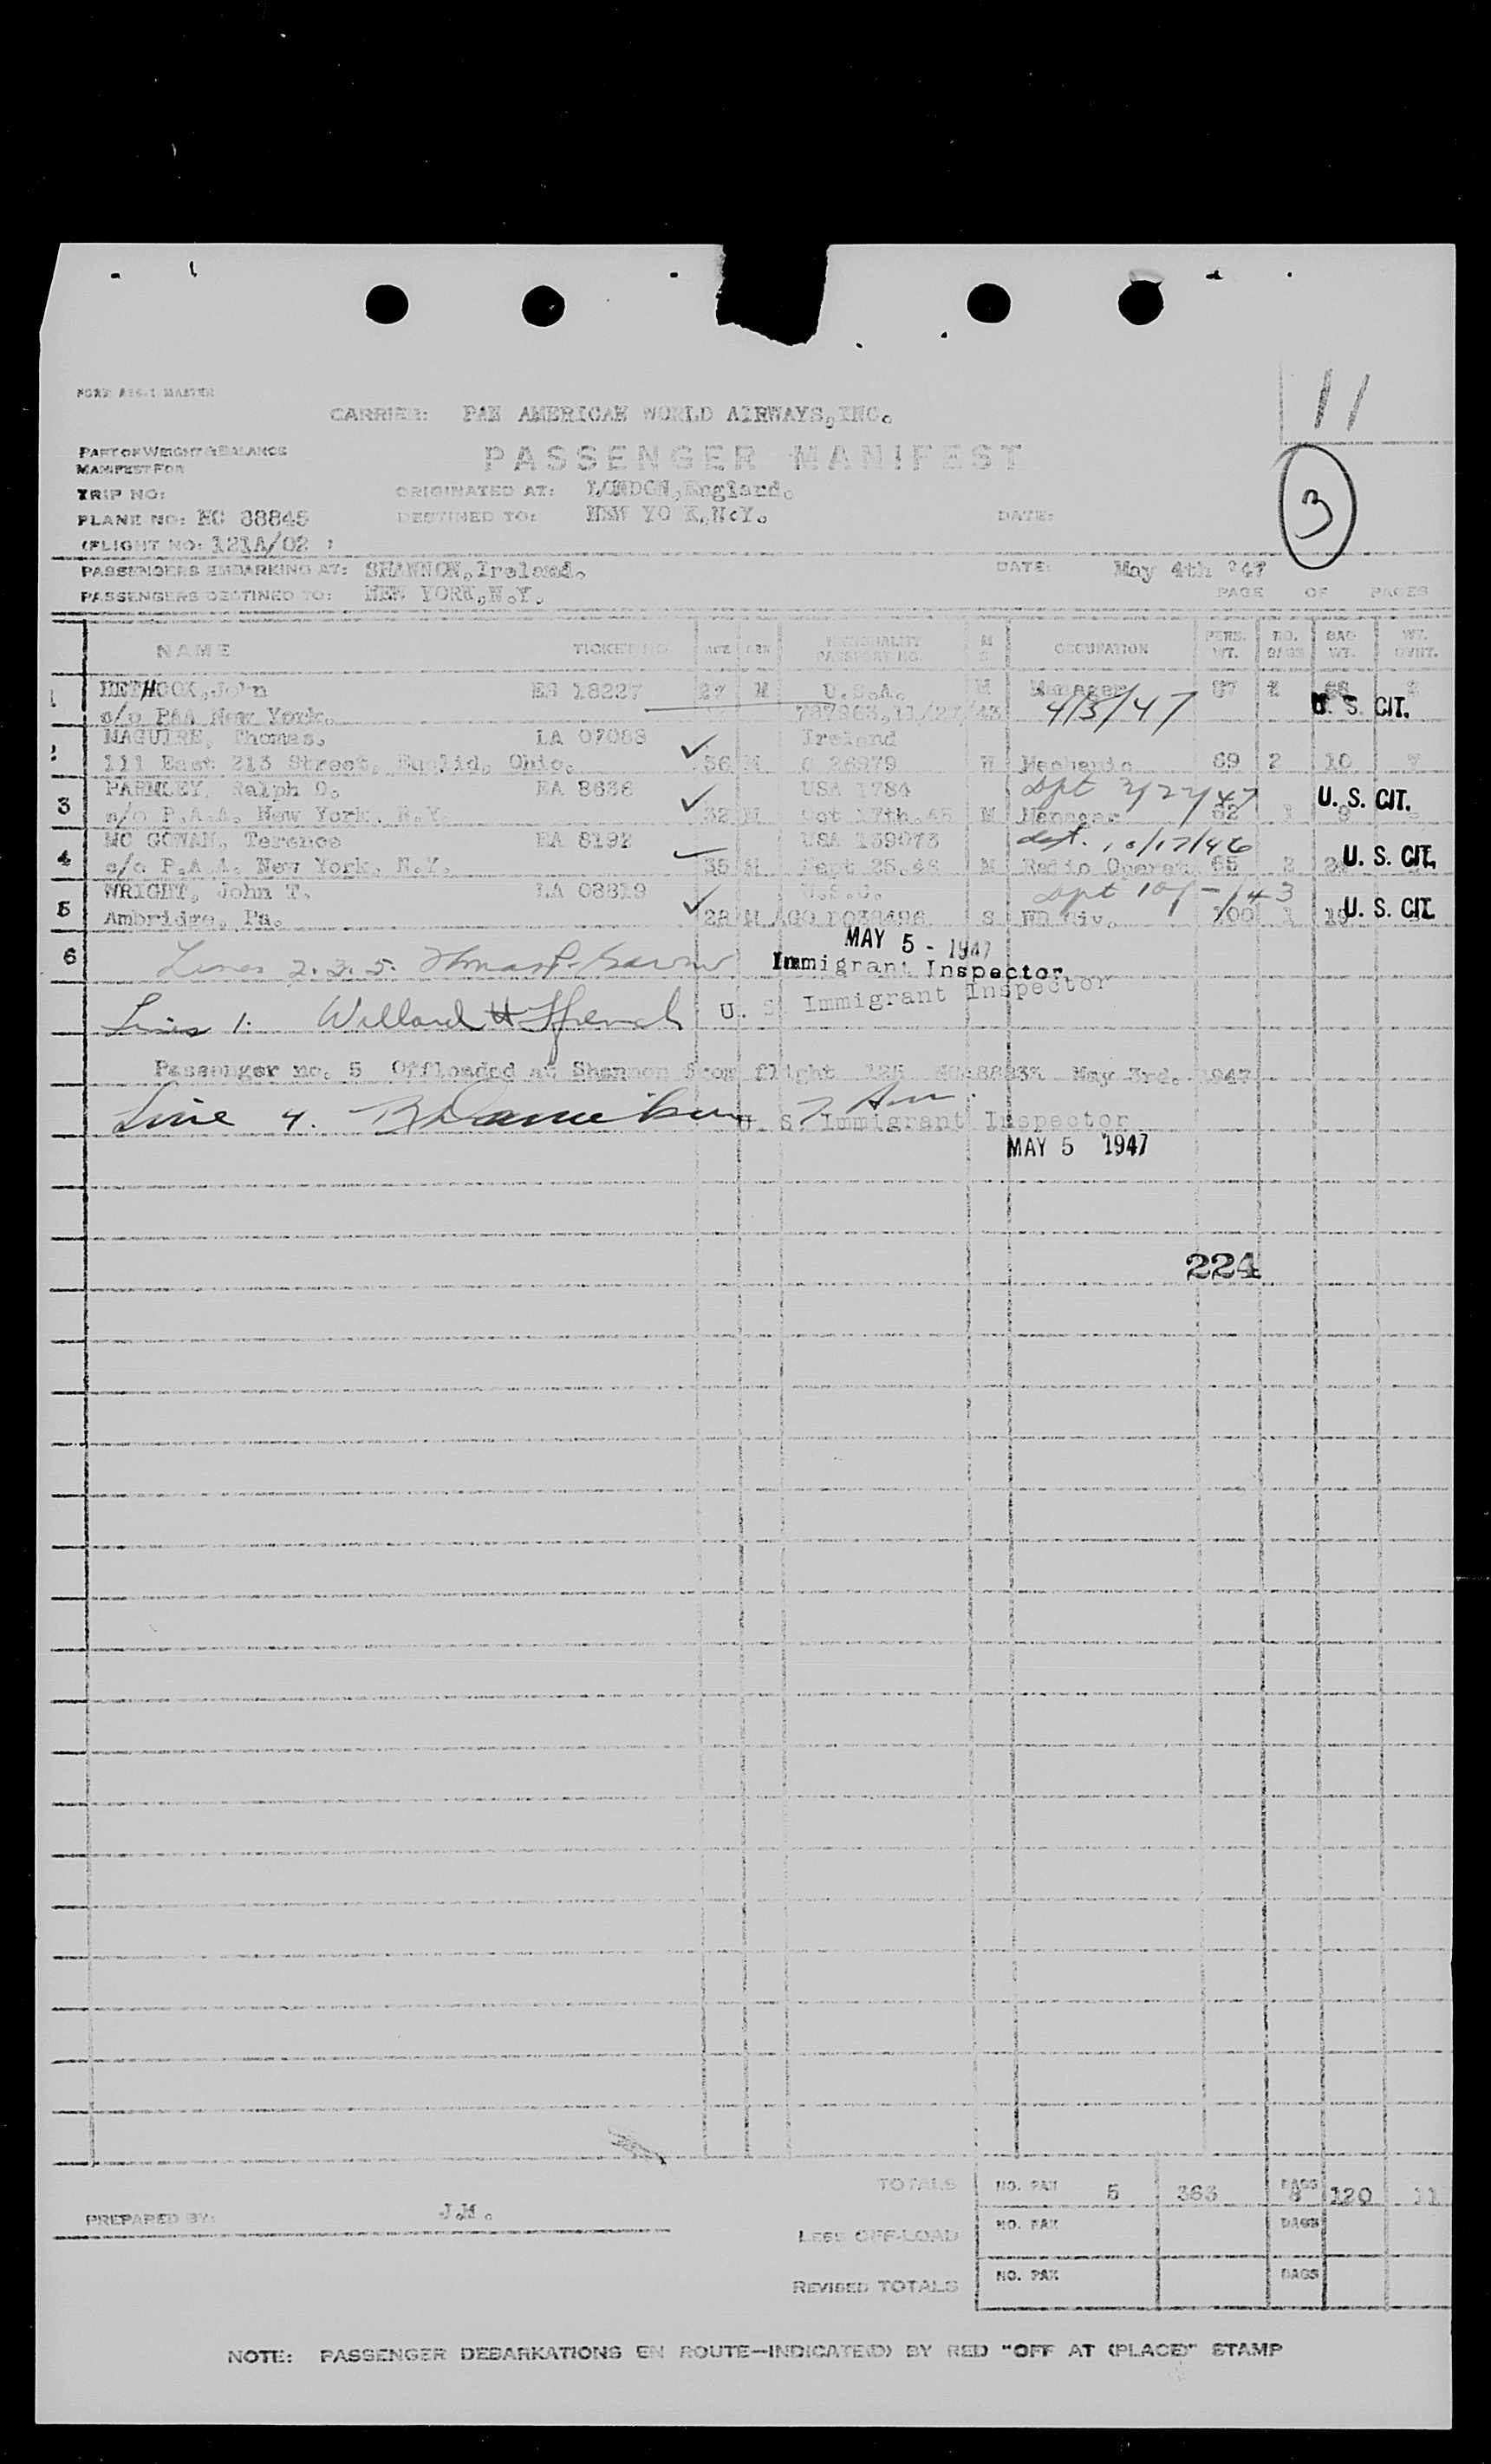 11
CARRIER: PAN AMERICAN WORLD AIRWAYS, INC.
PART OF WEIGHT & BALANCE
MANIFEST FOR
PASSENGER MANIFEST
3
TRIP NO:
ORIGINATED AT: LONDON, England.
PLANE NO: NC 88845
DESTINED TO: NEW YO K, N.Y.
DATE:
(FLIGHT NO: 121A/02 )
PASSENGERS EMBARKING AT: SHANNON, Ireland.
DATE: May 4th '47
PASSENGERS DESTINED TO: NEW YORK, N.Y.
PAGE OF PAGES
NAME TICKET NO. AGE SEX NATIONALITY PASSPORT NO. M S OCCUPATION PERS. WT. NO. BAGS BAG WT. WT. OVHT.
1 John 18227 27 M U.S.A. M Manager 87
c/o PAA New York. 4/3/47 U. S. CIT.
2 MAGUIRE, Thomas. LA 07088 Ireland
111 East 213 Street, Euclid, Ohio. 36 M 26979 Mechanic 69 2 10
3 Ralph O. EA 8636 USA 1784 dpt 2/27/47 U. S. CIT.
c/o P.A.A. New York, N.Y. 32 M Oct 17th.45 M Manager 62 1 9
4 MC GOWAN, Terence EA 8192 USA 139073 dept. 10/17/46
c/o P.A.A. New York, N.Y. 35 M Sept 25.45 M Radio Operat. 65 2 U. S. CIT.
5 WRIGHT, John T. LA 08819 dpt
Ambridge, Pa. 28 M AGO S Div. 100 1 19 U. S. CIT.
MAY 5 - 1947
6 Lines 2.3.5. Immigrant Inspector
Lines 1. Willard H French U. S. Immigrant Inspector
Passenger no. 5 Offloaded at Shannon from flight 125 May 3rd. 1947
Line 4. U. S. Immigrant Inspector
MAY 5 1947
224
TOTALS NO. PAX 5 363 BAGS 8 120 11
PREPARED BY: J.M.
LESS OFF-LOAD NO. PAX BAGS
REVISED TOTALS NO. PAX BAGS
NOTE: PASSENGER DEBARKATIONS EN ROUTE—INDICATE(D) BY RED "OFF AT (PLACE)" STAMP